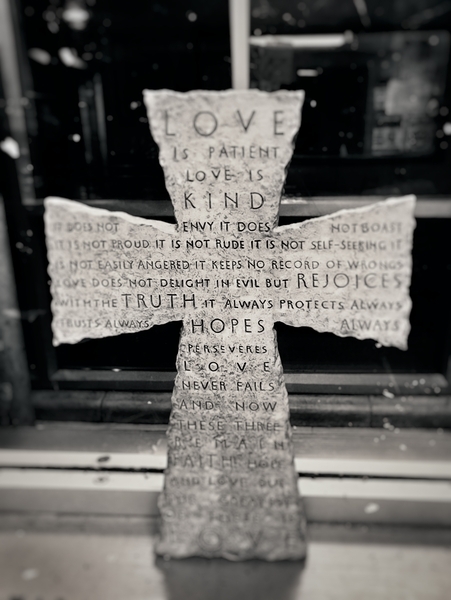 LOVE
IS PATIENT
LOVE IS
KIND
IT DOES NOT ENVY IT DOES NOT BOAST
IT IS NOT PROUD IT IS NOT RUDE IT IS NOT SELF-SEEKING IT
IS NOT EASILY ANGERED IT KEEPS NO RECORD OF WRONGS
LOVE DOES NOT DELIGHT IN EVIL BUT REJOICES
WITH THE TRUTH IT ALWAYS PROTECTS ALWAYS
TRUSTS ALWAYS HOPES ALWAYS
PERSEVERES
LOVE
NEVER FAILS
AND NOW
THESE THREE
REMAIN
FAITH HOPE
AND LOVE BUT